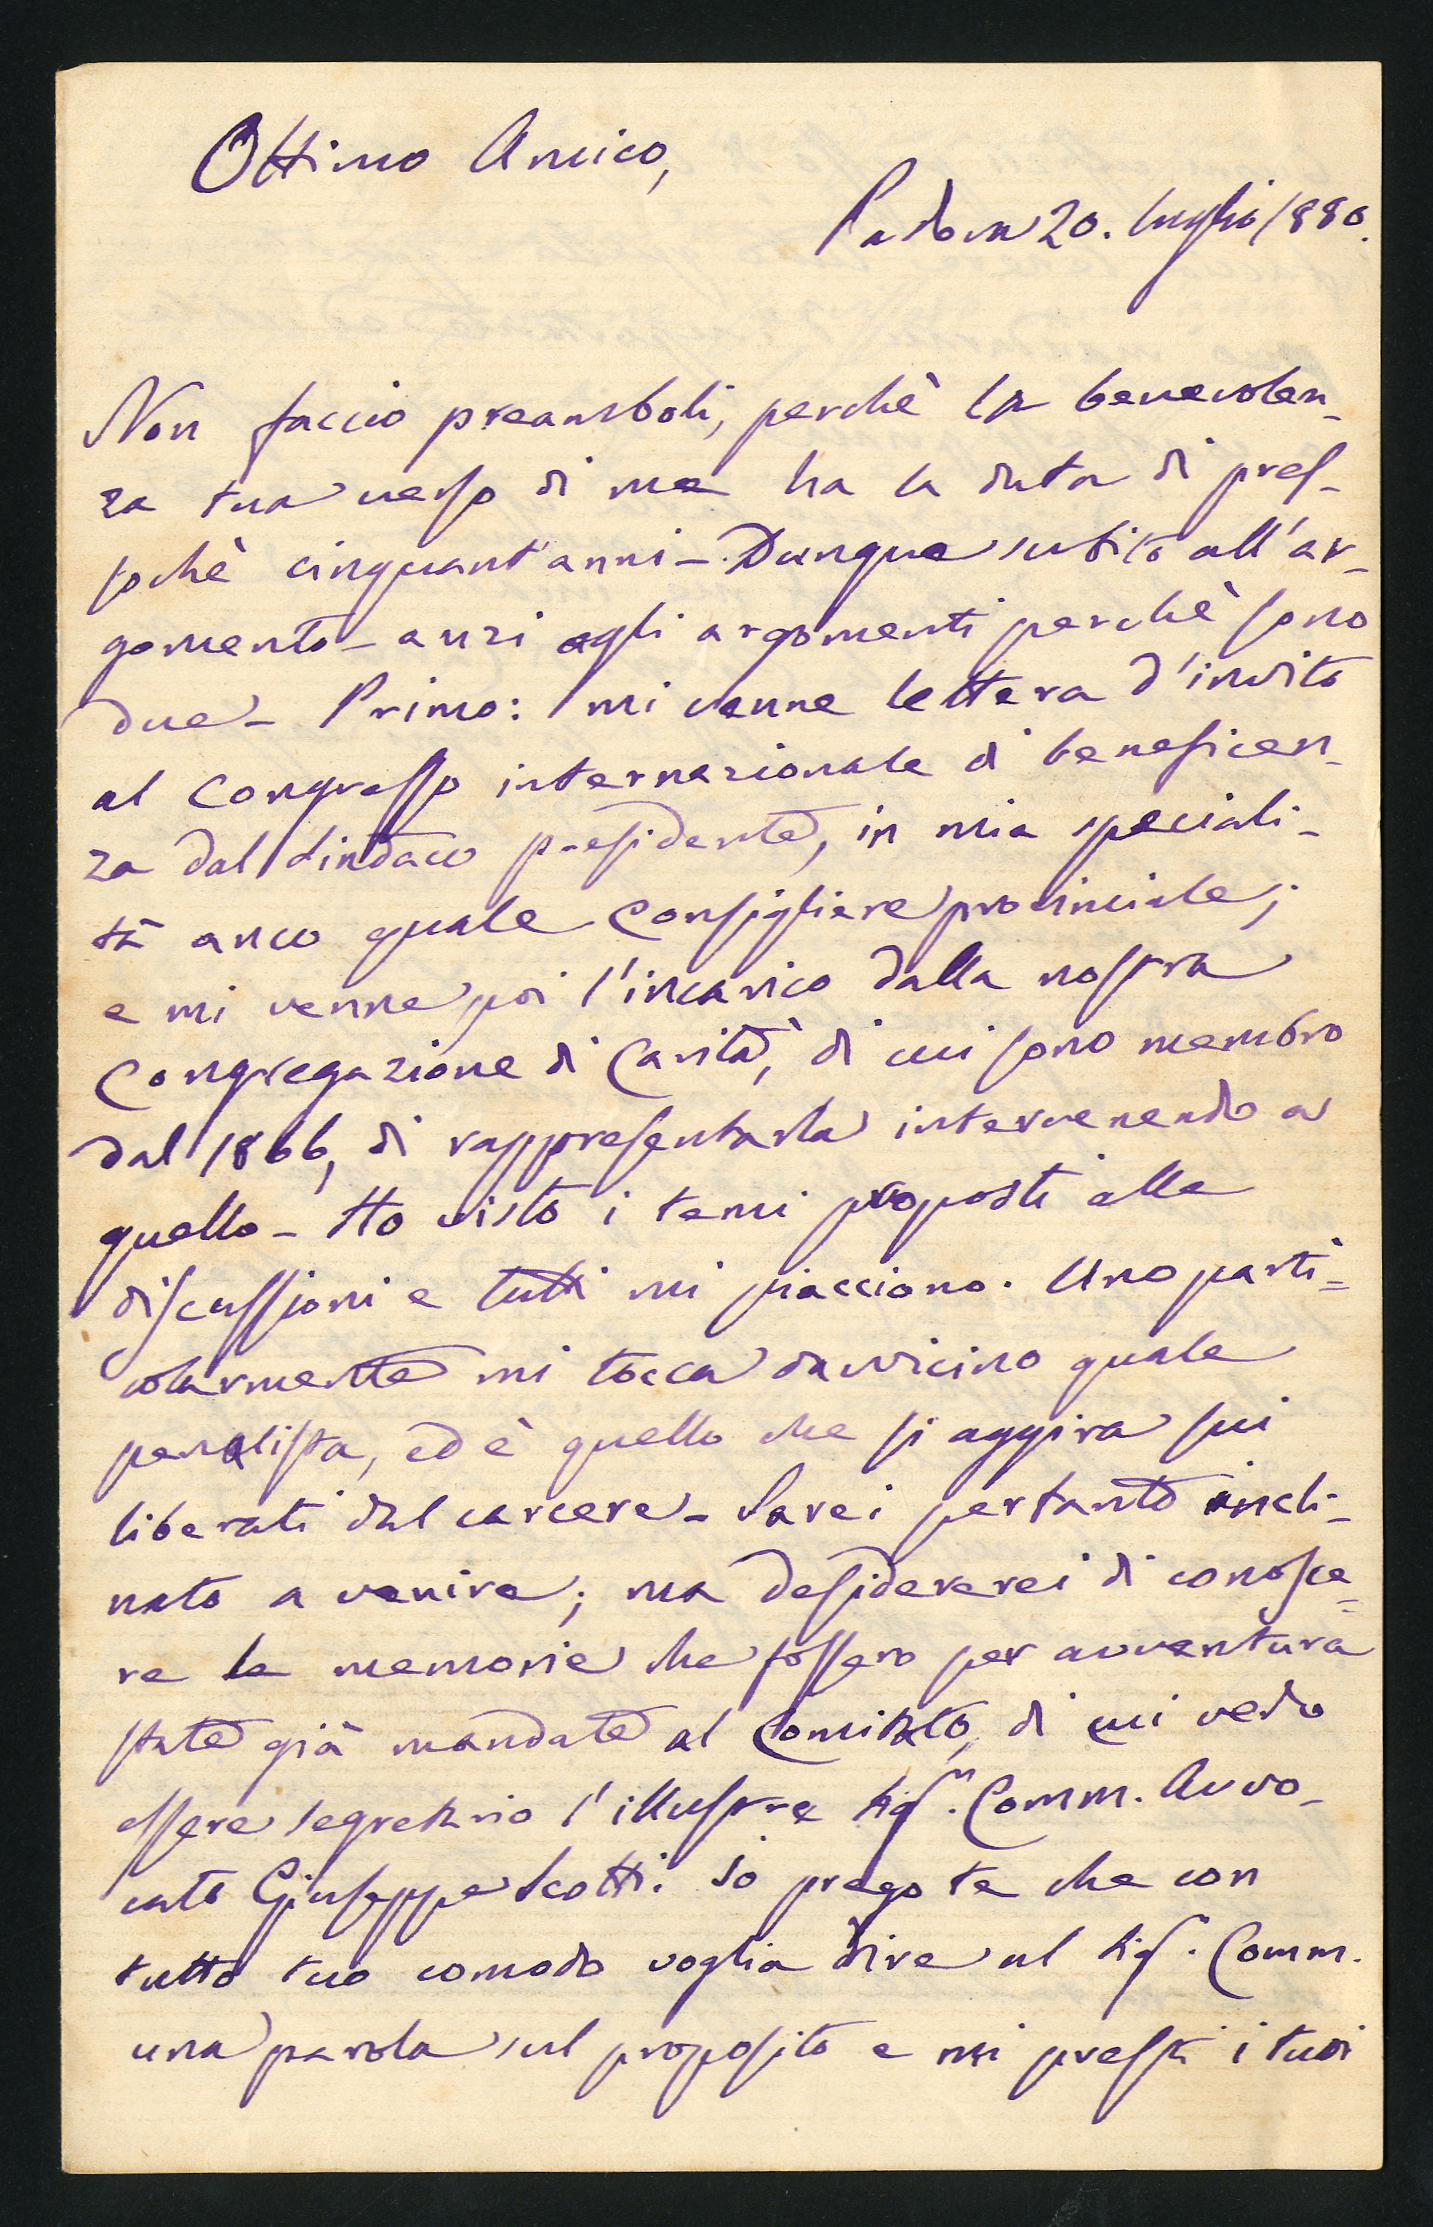 Ottimo Amico,
Padova 20. luglio 1880.
Non faccio preamboli, perchè la benevolen-
za tua verso di me ha la data di pres-
sochè cinquant'anni - Dunque subito all'ar-
gomento - anzi agli argomenti perchè sono
due - Primo: mi venne lettera d'invito
al Congresso internazionale di beneficen-
za dal Sindaco presidente, in mia speciali-
tà anco quale Consigliere provinciale;
e mi venne poi l'incarico dalla nostra
Congregazione di Carità, di cui sono membro
dal 1866, di rappresentarla intervenendo a
quello - Ho visto i temi proposti alle
discussioni e tutti mi piacciono. Uno parti-
colarmente mi tocca davvicino quale
penalista, ed è quello che si aggira sui
liberati dal carcere - Sarei pertanto incli-
nato a venire; ma desidererei di conosce-
re le memorie che fossero per avventura
state già mandate al Comitato, di cui vedo
essere segretario l'illustre Sigr. Comm. Avvo-
cato Giuseppe Scotti. Io prego te che con
tutto tuo comodo voglia dire al Sigr. Comm.
una parola sul proposito e mi presti i tuoi